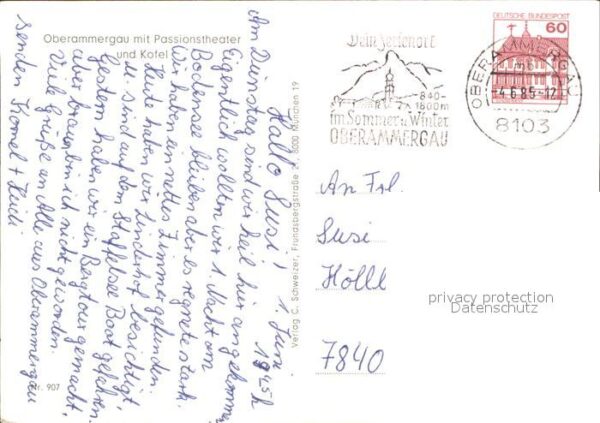 Oberammergau mit Passionstheater
und Kofel
Hallo Susi! 1. Juni
1945h
Am Dienstag sind wir heil hier angekommen
Eigentlich wollten wir 1 Nacht am
Bodensee bleiben aber es regnete stark.
Wir haben ein nettes Zimmer gefunden.
Heute haben wir Linderhof besichtigt
u. sind auf dem Staffelsee Boot gefahren.
Gestern haben wir ein Bergtour gemacht,
aber braun bin ich nicht geworden.
Viele Grüße an Alle aus Oberammergau
senden + Heidi
Nr. 907
Verlag C. Schweizer, Frundsbergstraße 8000 München 19
Dein Ferienort
840-
1800m
im Sommer u. Winter
OBERAMMERGAU
OBERAMMERGAU
-4.6.85-12
8103
DEUTSCHE BUNDESPOST
60
An Frl.
Susi
Hölll
7840
privacy protection
Datenschutz